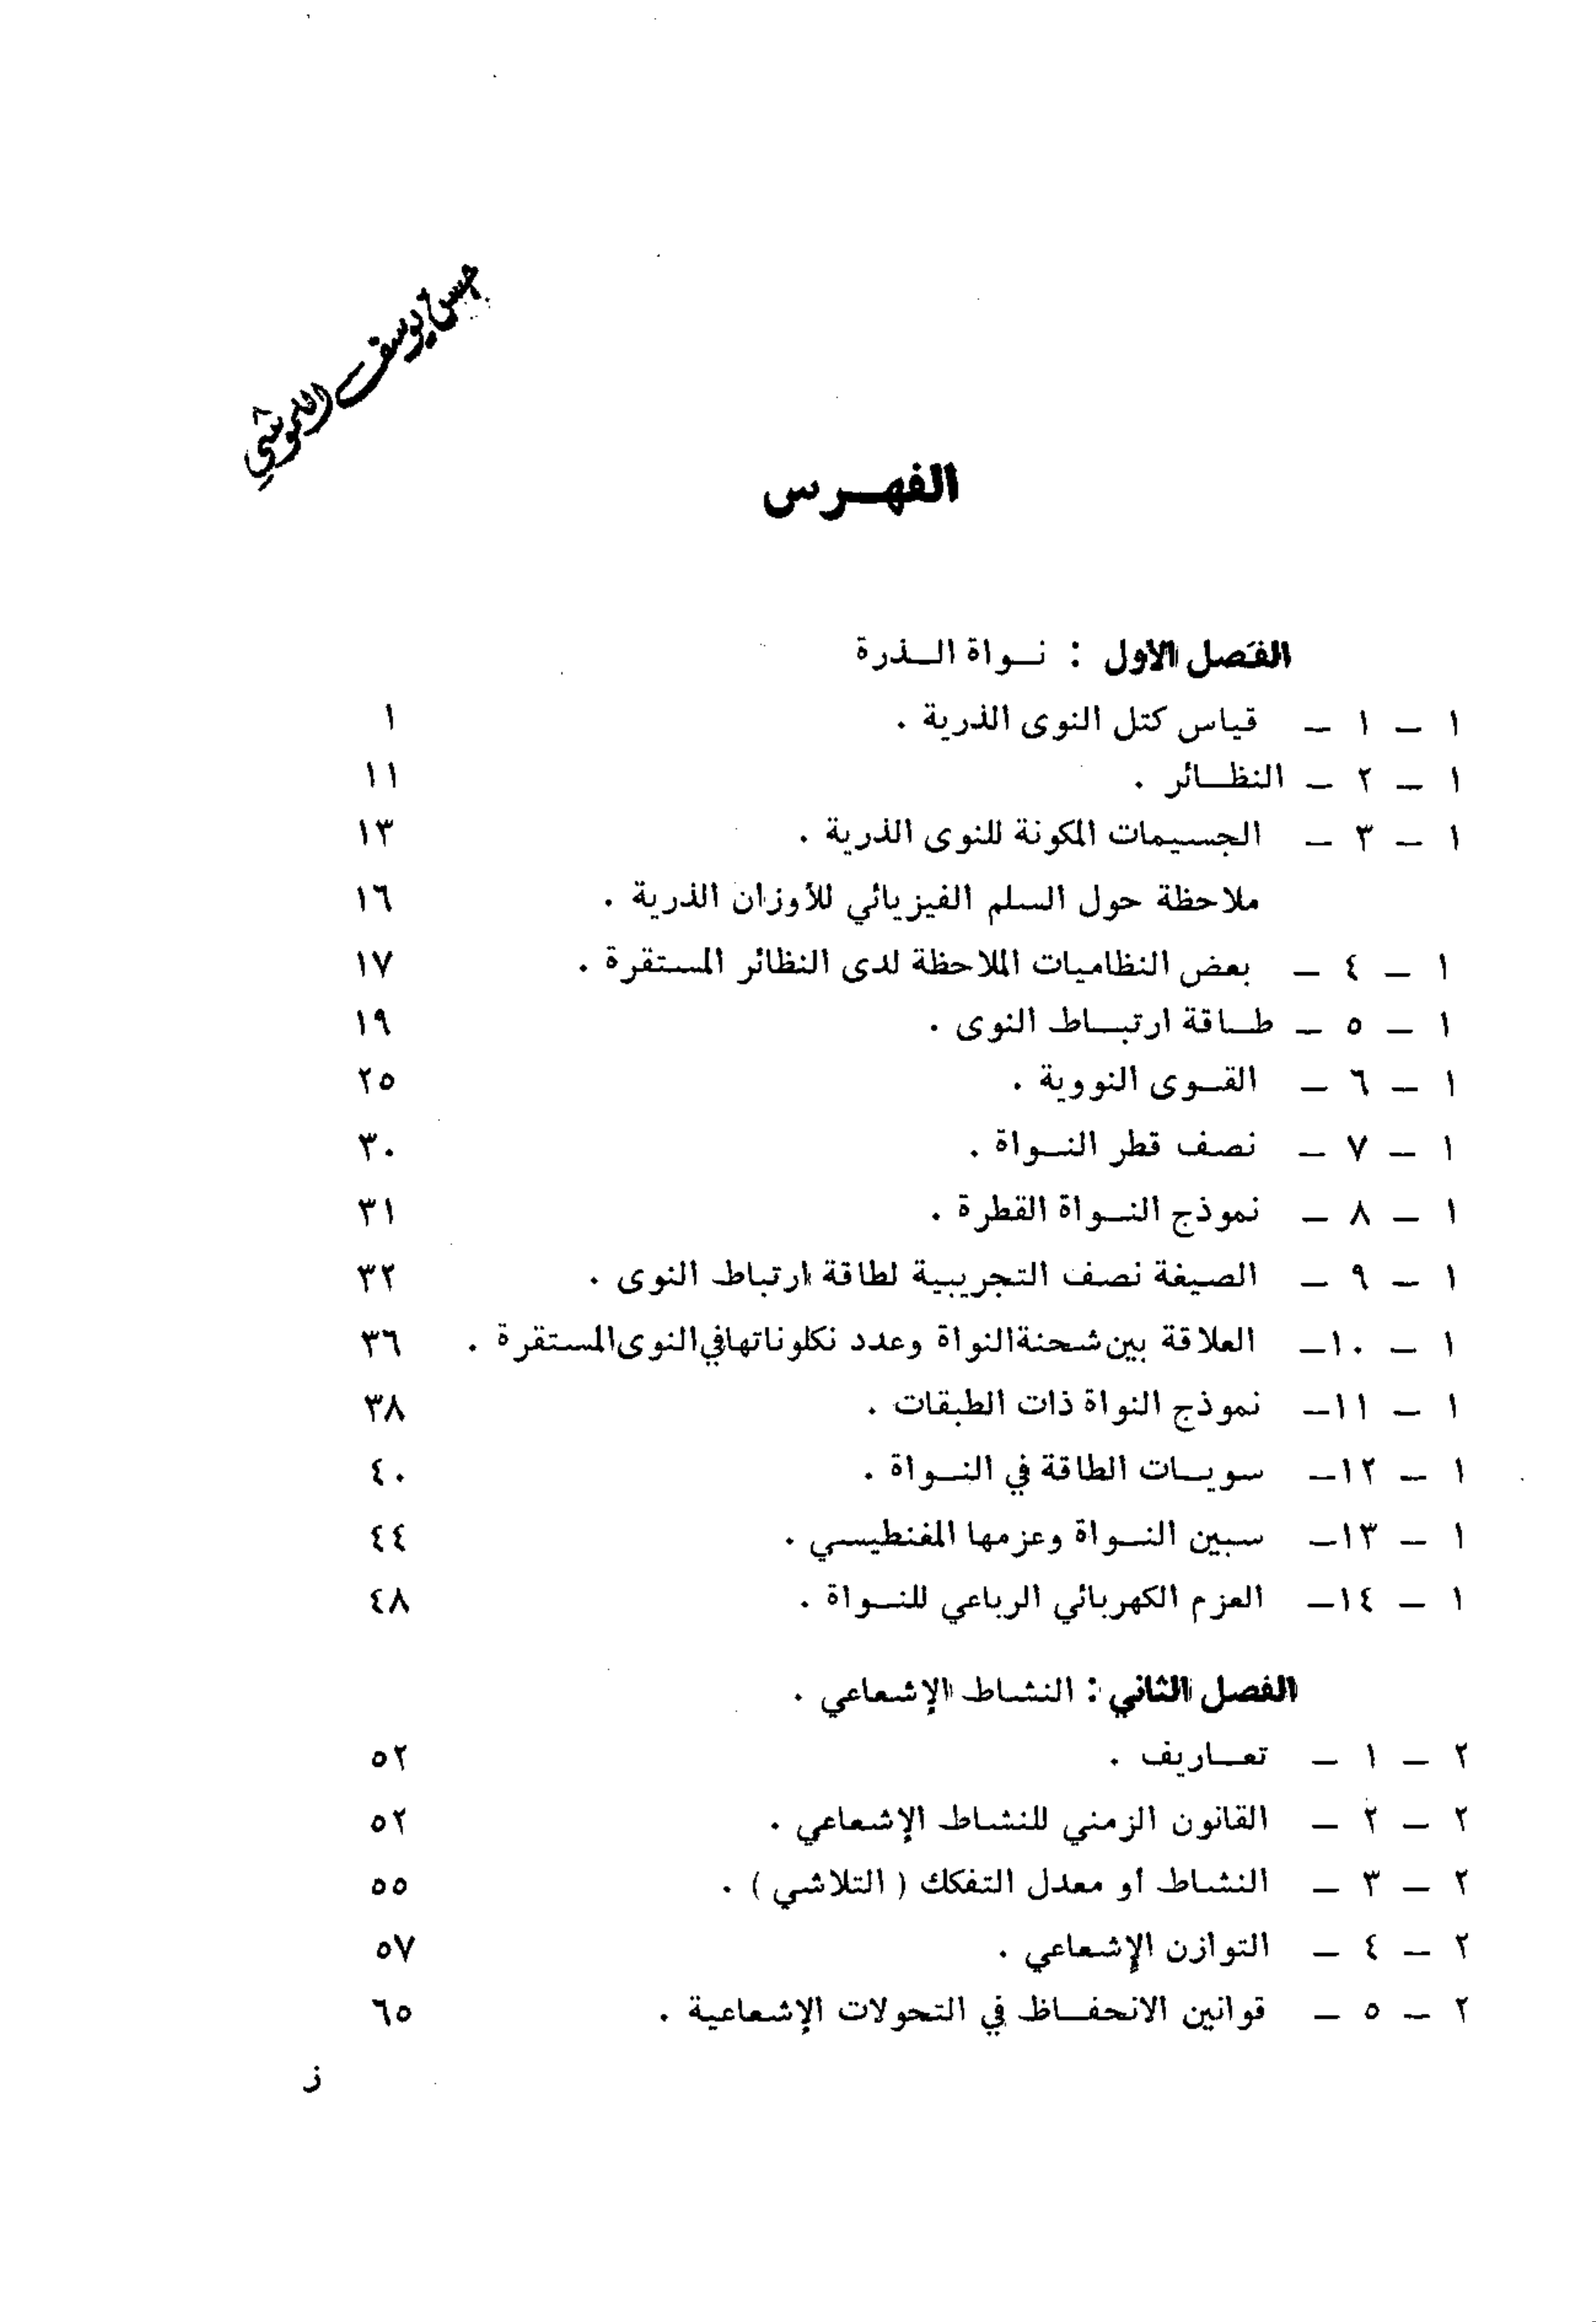 حسن يوسف
الفهرس
الفصل الأول : نواة الذرة
١ – ١ – قياس كتل النوى الذرية . ١
١ – ٢ – النظائر . ١١
١ – ٣ – الجسيمات المكونة للنوى الذرية . ١٣
ملاحظة حول السلم الفيزيائي للأوزان الذرية . ١٦
١ – ٤ – بعض النظاميات الملاحظة لدى النظائر المستقرة . ١٧
١ – ٥ – طاقة ارتباط النوى . ١٩
١ – ٦ – القوى النووية . ٢٥
١ – ٧ – نصف قطر النواة . ٣٠
١ – ٨ – نموذج النواة القطرة . ٣١
١ – ٩ – الصيغة نصف التجريبية لطاقة ارتباط النوى . ٣٢
١ – ١٠– العلاقة بين شحنة النواة وعدد نكلوناتها في النوى المستقرة . ٣٦
١ – ١١– نموذج النواة ذات الطبقات . ٣٨
١ – ١٢– سويات الطاقة في النواة . ٤٠
١ – ١٣– سبين النواة وعزمها المغنطيسي . ٤٤
١ – ١٤– العزم الكهربائي الرباعي للنواة . ٤٨
الفصل الثاني : النشاط الإشعاعي .
٢ – ١ – تعاريف . ٥٢
٢ – ٢ – القانون الزمني للنشاط الإشعاعي . ٥٢
٢ – ٣ – النشاط أو معدل التفكك ( التلاشي ) . ٥٥
٢ – ٤ – التوازن الإشعاعي . ٥٧
٢ – ٥ – قوانين الانحفاظ في التحولات الإشعاعية . ٦٥
ز